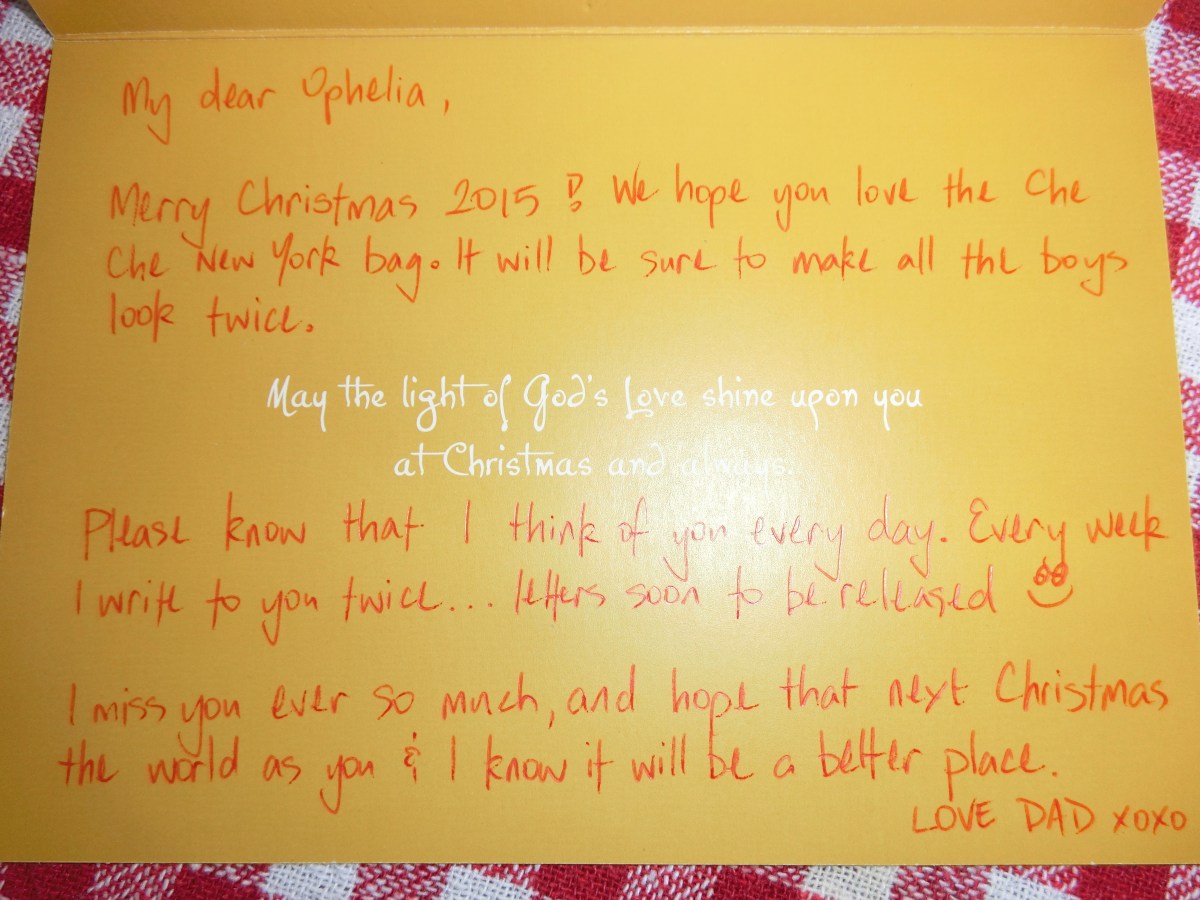 My dear Ophelia,
Merry Christmas 2015! We hope you love the Che
Che New York bag. It will be sure to make all the boys
look twice.
May the light of God's Love shine upon you
at Christmas and always.
Please know that I think of you every day. Every week
I write to you twice... letters soon to be released
I miss you ever so much, and hope that next Christmas
the world as you & I know it will be a better place.
LOVE DAD xoxo